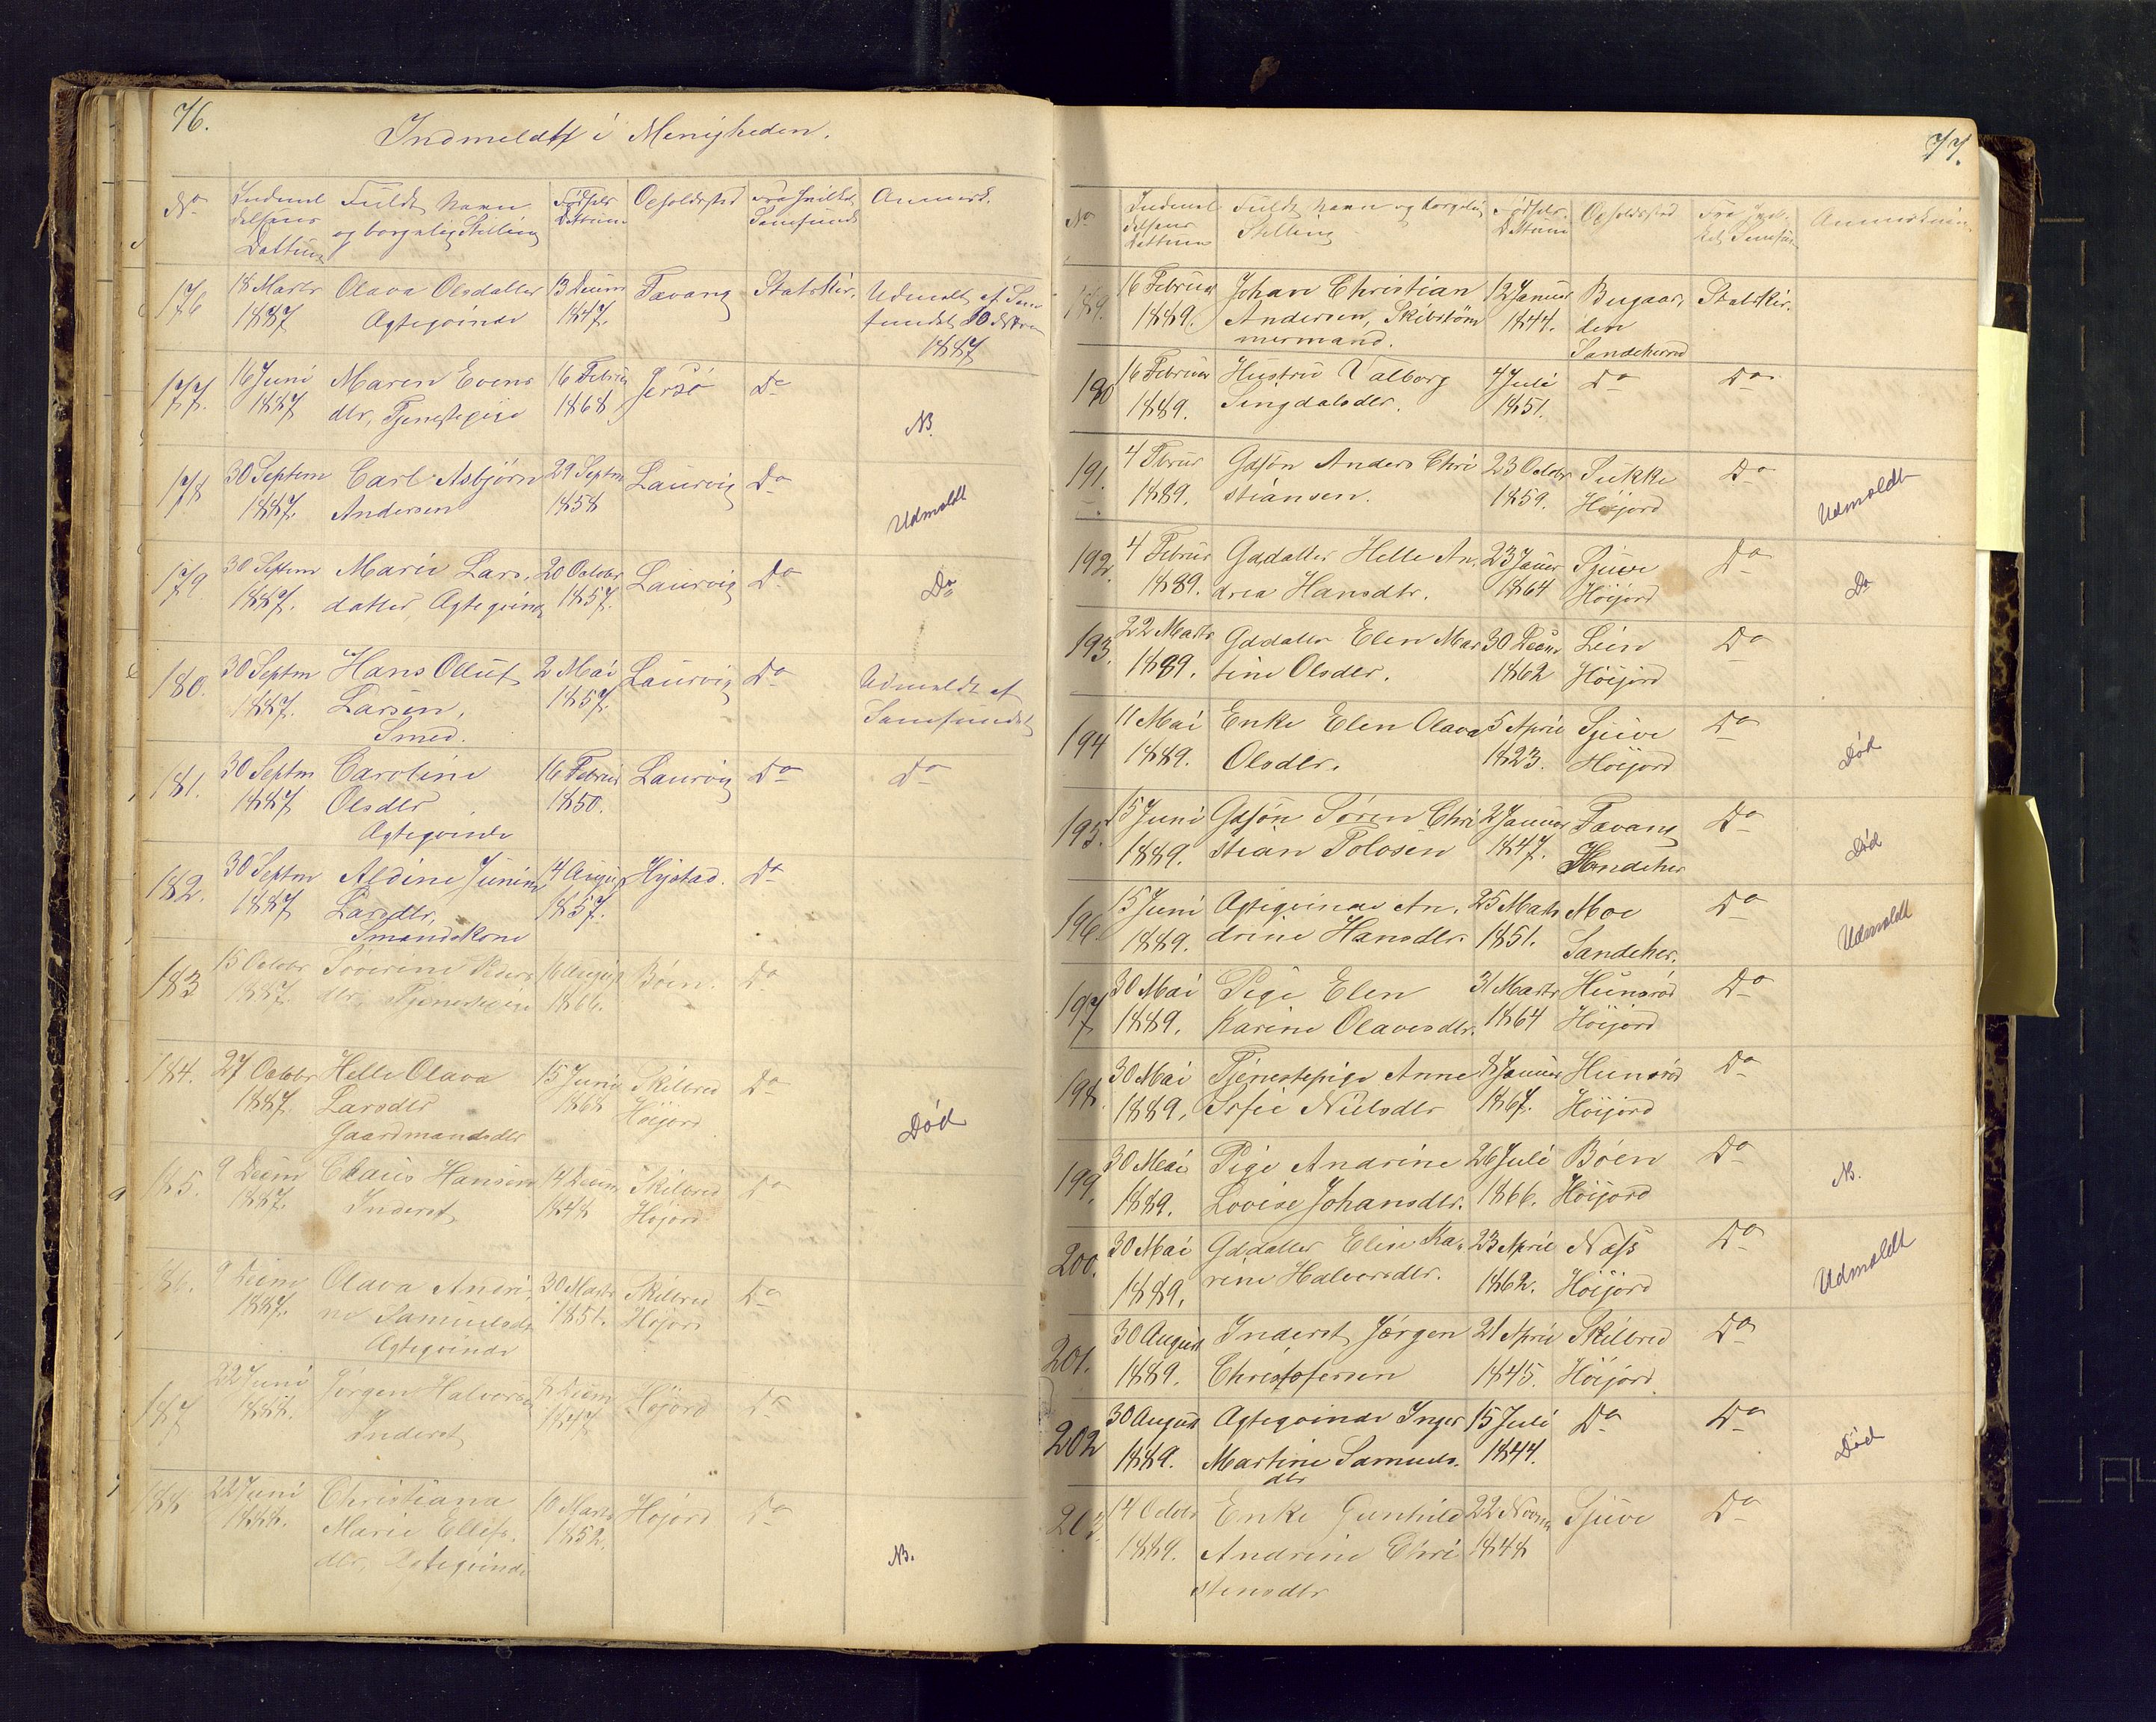 76.
Indmeldt i Menigheden.
No
Indmel
delsens
Dattum
Fuldt Navn
og borgerlig Stilling
Fødsels
Dattum
Opholdssted
Fra hvilket
Samfund
Anmerk.
176
18 Marts
1887
Olava Olsdatter
Ægteqvinde
13 Decem
1847.
Favang
Statskir.
Udmeldt af Sam
fundet
1887
177.
16 Juni
1887
Maren Evens
dtr, Tjenestepige
16 Februar
1868
Jersø
Do
NB.
178
30 Septem
1887.
Carl Asbjørn
Andersen
29 Septm
1858
Laurvig
Do
Udmeldt
179
30 Septem
1887.
Marie Lars.
datter, Ægteqvinde
20 October
1857.
Laurvig
Do
Do
180.
30 Septm
1887.
Hans Olluf
Larsen,
Smed.
2 Mai
1857.
Laurvig
Do
Udmeldt af
Samfundet
181.
30 Septm
1887
Caroline
Olsdtr
Ægteqvinde
16 Februar
1850.
Laurvig
Do
Do
182.
30 Septm
1887
Aldine
Larsdtr,
Smandskone
14 August
1857.
Hystad.
Do
183
15 Octobr
1887.
Severine Peders
dtr, Tjenestepige
16 August
1866.
Bøen.
Do
184.
27 Octobr
1887.
Helle Olava
Larsdtr
Gaardmandsdtr
15 Juni
1868
Skilbred
Høijord
Do
Død
185.
9 Decem
1887.
Claus Hansen
Inderst
14 Decem
1848
Skilbred
Højord
Do
186.
9 Decem
1887.
Olava Andri
ne Samuelsdtr
Ægteqvinde
30 Marts
1851.
Skilbred
Højord
Do
187
22 Juni
1888.
Jørgen Halvorsen
Inderst
8 Decem
1847
Højord
Do
188
22 Juni
1888.
Christiana
Marie Ellefs.
dtr, Ægteqvinde
10 Marts
1852.
Højord
Do
NB.
77.
No
Indmel
delsens
Dattum
Fuldt Navn og borgerlig
Stilling
Fødsels
Dattum
Opholdssted
Fra hvil-
ket Samfun
Anmerkning
189.
16 Februar
1889.
Johan Christian
Andersen, Skibstøm
mermand.
12 Januar
1844.
Bugaar.
den
Sandeherred
Statskir.
190
16 Februar
1889.
Hustru Valborg
Singdalsdtr.
4 Juli
1851.
Do
Do
191.
4 Februar
1889.
Gdsøn Anders Chri
stiansen.
23 Octobr
1859.
Sukke
Høijord
Do
Udmeldt
192.
4 Februar
1889.
Gddatter Helle An.
drea Hansdtr.
23 Januar
1864
Sjuve
Høijord
Do
Do
193.
22 Marts
1889.
Gddatter Elen Mar
tine Olsdtr.
30 Decem
1862
Lein
Høijord
Do
194
11 Mai
1889.
Enke Elen Olava
Olsdtr.
5 April
1823.
Sjuve
Høijord
Do
Død
195.
15 Juni
1889.
Gdsøn Søren Chri
stian Polosen
2 Januar
1847.
Favang
Sandeher
Do
Død
196
15 Juni
1889.
Ægteqvinde An.
drine Hansdtr.
25 Marts
1851.
Moe
Sandeher.
Do
Udmeldt
197
30 Mai
1889.
Pige Elen
Karine Olavesdtr.
31 Marts
1864
Hunsrød
Høijord
Do
198
30 Mai
1889.
Tjenestepige Anne
Sofie Nielsdtr
8 Januar
1867.
Hunsrød
Høijord
Do
199.
30 Mai
1889.
Pige Andrine
Lovise Johansdtr.
26 Juli
1866.
Bøen
Høijord
Do
NB.
200.
30 Mai
1889.
Gddatter Elen Ka.
rine Halvorsdtr.
23 April
1862.
Næss
Høijord
Do
Udmeldt
201.
30 August
1889.
Inderst Jørgen
Christofersen
21 April
1845.
Skilbred
Høijord
Do
202
30 August
1889.
Ægteqvinde Inger
Martine Samuels.
dtr
15 Juli
1844.
Do
Do
Død
203.
14 Octobr
1889.
Enke Gunhild
Andrine Chri
stensdtr
22 Novem
1848
Sjuve
Do